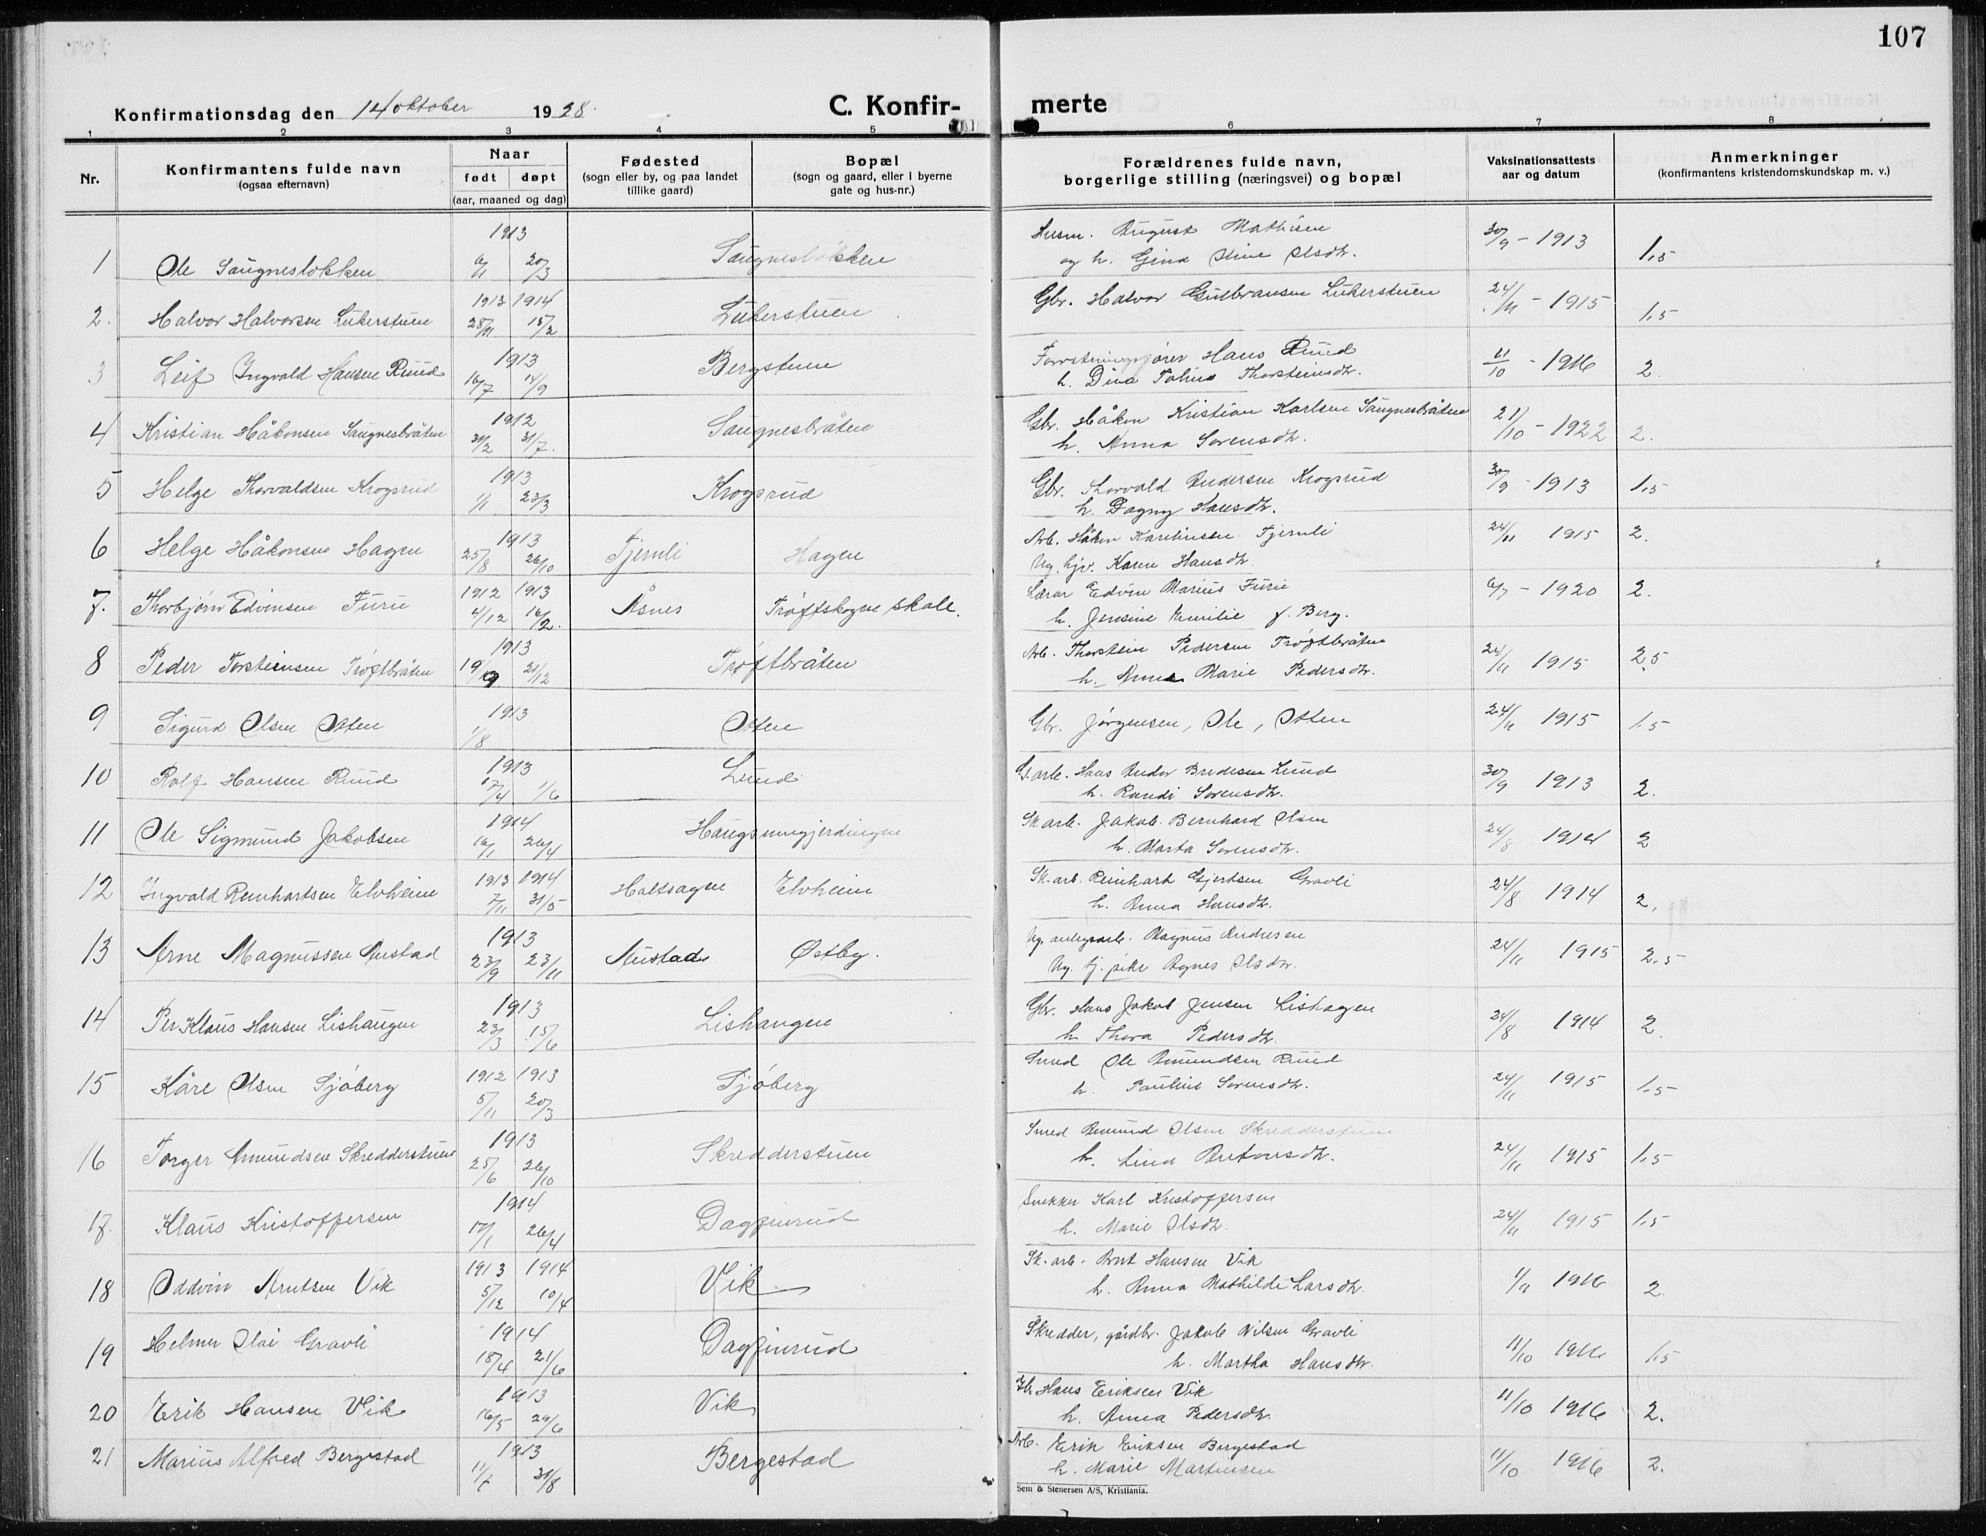 107
Konfirmationsdag den 14 oktober 1928.
C. Konfir-
merte
1 2 3 4 5 6 7 8
Nr.
Konfirmantens fulde navn
(ogsaa efternavn)
Naar
født døpt
(aar, maaned og dag)
Fødested
(sogn eller by, og paa landet
tillike gaard)
Bopæl
(sogn og gaard, eller i byerne
gate og hus-nr.)
Forældrenes fulde navn,
borgerlige stilling (næringsvei) og bopæl
Vaksinationsattests
aar og datum
Anmerkninger
(konfirmantens kristendomskundskap m. v.)
1913 August Mathisen 30/9 - 1913
1 Ole Saugnesløkken 20/3 Saugnesløkken og h. Gina Olsdtr. 1,5
1913 1914 Gbr. Halvor Gulbransen Lükerstuen 24/11 - 1915
2. Halvor Halvorsen Lükerstuen 28/11 15/2 Lükerstuen 1,5
1913 Hans Ruud 11/10 - 1916
3 Leif Ingvald Hansen Ruud 16/7 14/9 Bergstuen h. Dina Thorsteinsdtr. 2.
1912 Gbr. Håkon Kristian Karlsen Saugnesbråten 21/10 - 1922
4 Kristian Håkonsen Saugnesbråten 31/7. Saugnesbråten h. Anna Sorensdtr. 2.
1913 Gbr. Thorvald Andersen Krogsrud 30/9 - 1913
5 Helge Thorvaldsen Krogsrud 1/1 23/3 Krogsrud h. Dagny Hansdtr. 1,5
1913 Arb. Håkon Fjernli 24/11 1915
6 Helge Håkonsen Hagen 25/8 26/10 Fjernli Hagen Ug. Karen Hansdtr. 2.
1912 1913 Lærer Edvin Marius Furu 6/7 - 1920
7. Thorbjørn Edvinsen Furu 4/12 16/2. Åsnes Trøftskogen skole. h. Jensine Emilie f. Berg. 2.
1913 Arb. Thorstein Pedersen Trøftbråten 24/11 1915
8 Peder Torsteinsen Trøftbråten 21/12 Trøftbråten h. Anne Marie Pedersdtr. 2,5
1913 24/11 1915
9 Sigurd Olsen Otten 1/8 Otten Gbr. Jørgensen, Ole, Otten 1,5
1913 Hans Bredesen Lund 30/9 1913
10 Rolf Hansen Ruud 1/6 Lund h. Randi Sorensdtr. 2.
1914 Sk. arb. Jakob Bernhard Olsen 24/8 1914
11 Ole Sigmund Jakobsen 16/1 26/4 h. Marta Sorensdtr. 2
1913 1914 Sk. arb. Reinhart Gjertsen Gravli 24/8 1914
12 Ingvald Reinhartsen Elvheim 7/11 31/5 Holtsagen Elvheim h. Anna Hansdtr. 2.
1913 Ug. Magnus Andresen 24/11 1915
13 Arne Magnussen Austad 23/9 23/11 Austad Østby. Ug. tj. pike Agnes Olsdtr. 2.5
1913 Gbr. Hans Jakob Jensen Lishagen 24/8 1914
14 Per Klaus Hansen Lishaugen 23/3 15/6 Lishaugen h. Thora Pedersdtr. 2.
1912 1913 Smed Ole Amundsen Ruud 24/11 1915
15 Kåre Olsen Sjøberg 5/11 20/3 Sjøberg h. Pauline Sorensdtr. 1.5
1913 Smed Amund Olsen Skredderstuen 24/11 1915
16 Torger Amundsen Skredderstuen 25/6 26/10 Skredderstuen h. Lina 1.5
1914 Snekker Karl Kristoffersen 24/11 1915
17. Klaus Kristoffersen 17/1 26/4 Dagfinrud h. Marie Olsdtr. 1.5
1913 1914 Sk. arb. Arnt Hansen Vik 1/9 1916
18 Oddvin Arntsen Vik 5/12 10/4 Vik h. Anna Mathilde Larsdtr. 2.
1914 Skredder, gårdbr. Jakob Nilsen Gravli 11/10 1916
19 Helmer Olai Gravli 18/4 21/6 Dagfinrud h. Martha Hansdtr. 1,5
1913 Hans Eriksen Vik 11/10 1916
20 Erik Hansen Vik 16/5 29/6 Vik h. Anna Pedersdtr. 2.
1913 Arb. Erik Eriksen Bergestad 11/10 1916
21 Marius Alfred Bergestad 31/8 Bergestad h. Marie Martinsen 2.
Sem & Stenersen A/S, Kristiania.